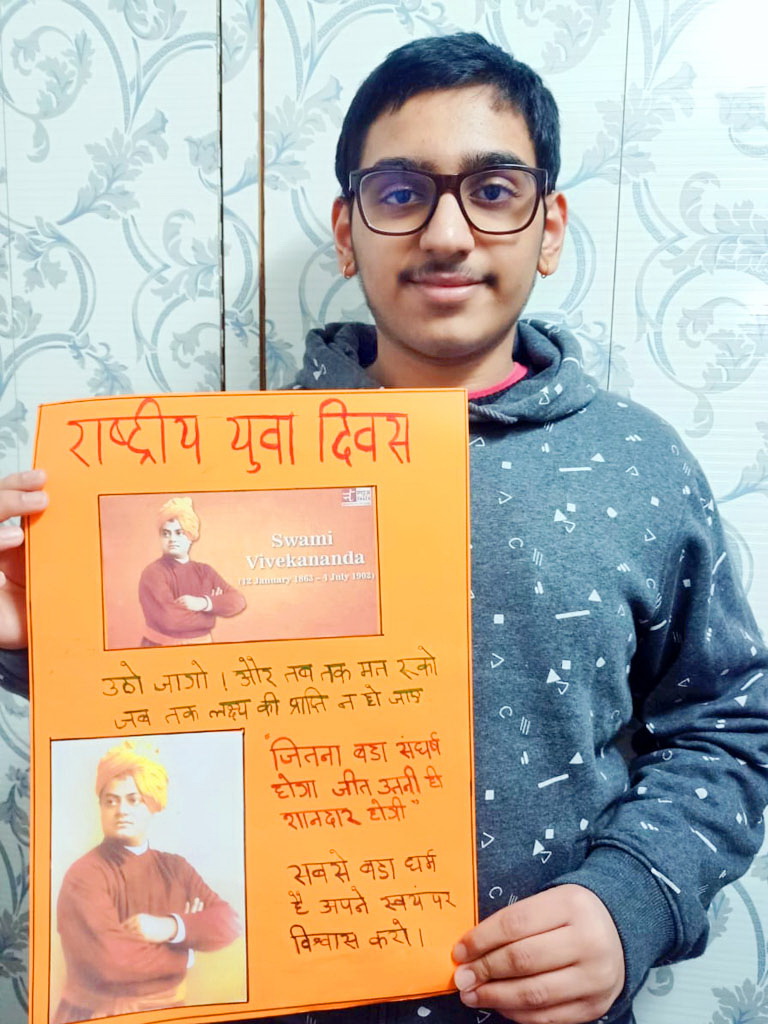 राष्ट्रीय युवा दिवस
Swami
Vivekananda
(12 January 1863 – 4 July 1902)
उठो जागो । और तब तक मत रूको
जब तक लक्ष्य की प्राप्ति न हो जाए
"जितना बडा संघर्ष
होगा जीत उतनी ही
शानदार होगी"
सबसे बडा धर्म
है अपने स्वयं पर
विश्वास करो।